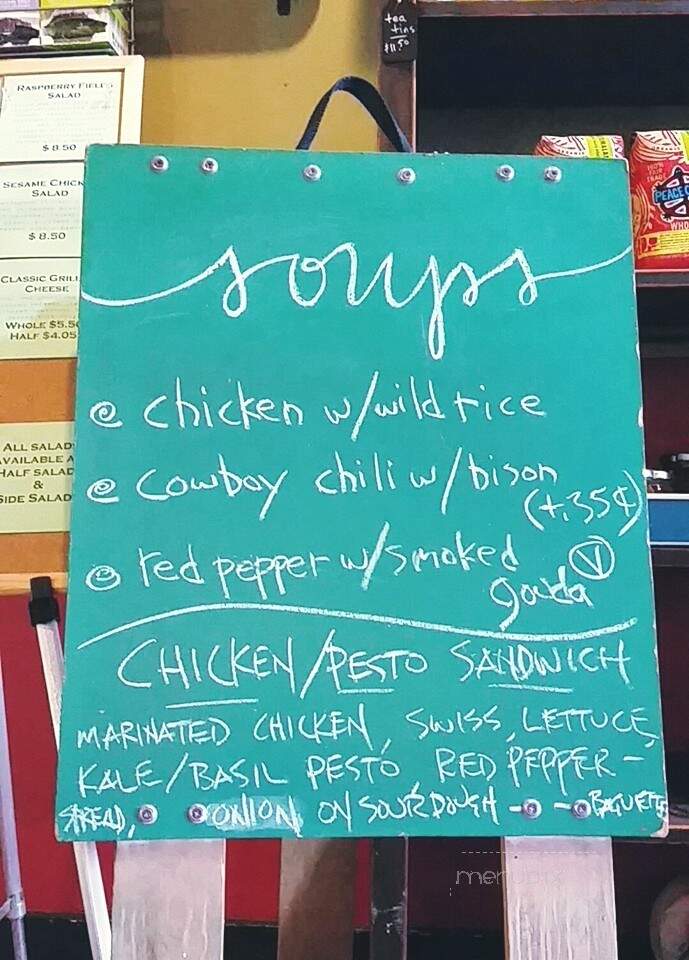 tea
tins
$11.50
RASPBERRY FIELDS
SALAD
$8.50
SESAME CHICK
SALAD
$8.50
CLASSIC GRILL
CHEESE
WHOLE $5.50
HALF $4.05
ALL SALAD
AVAILABLE A
HALF SALAD
&
SIDE SALAD
PEACE
soups
chicken w/wild rice
cowboy chili w/bison
(+.35¢)
red pepper w/smoked V
gouda
CHICKEN/PESTO SANDWICH
MARINATED CHICKEN, SWISS, LETTUCE,
KALE/BASIL PESTO, RED PEPPER-
SPREAD, ONION ON SOURDOUGH - - BAGUETTE